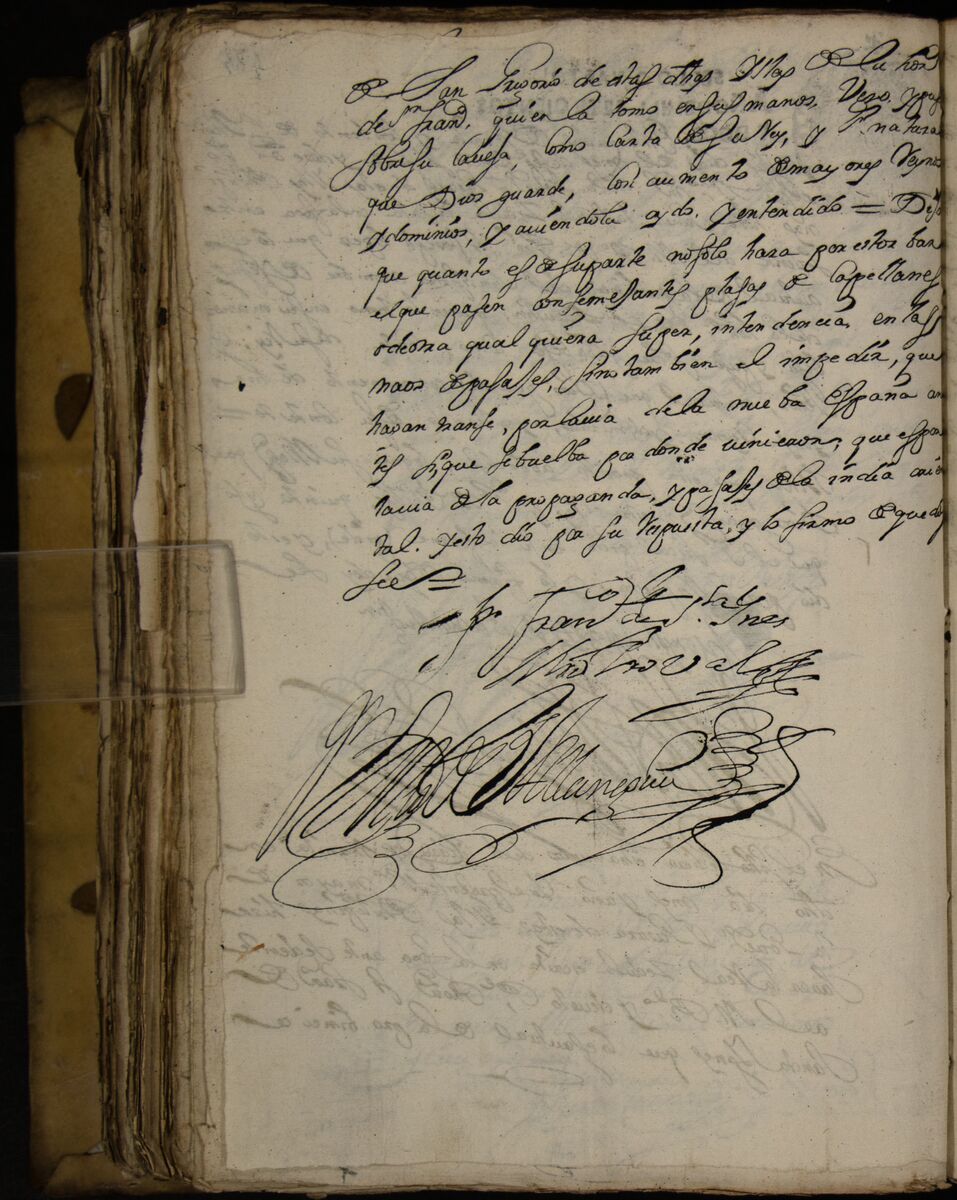 de San Gregorio de estas dhas Yslas de la horn
de Sn Franco, quien la tomo en sus manos, veso, y puso
sobre su cavesa, como carta de su Rey, y Sr natural
que Dios guarde, con aumento de mayores Reynos
y dominios, y aviendola oydo, y entendido = Dijo
que quanto es de su parte no solo hara por estorbar
el que pasen con semejantes plasas de Capellanes
ô de otra qual quiera super, intendencia, en las
naos de pasajes, sino tambien el impedir, que
hagan transe, por la via de la nueba España an
tes si, que se buelba por donde vinieron, que es por
la via de la propaganda, y pasajes de la india orien
tal. y esto dio por su respuesta, y lo firmo de que doy
fee =
fr Franco de Sta Ynes
Mro Proval